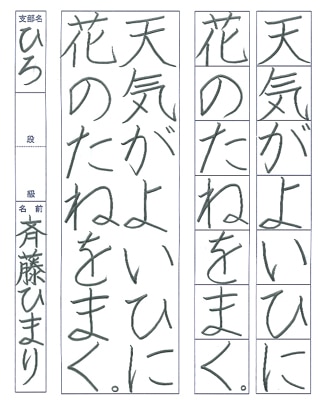 天気がよいひに
花のたねをまく。
天気がよいひに
花のたねをまく。
支部名
ひろ
段
級
名前
斉藤ひまり